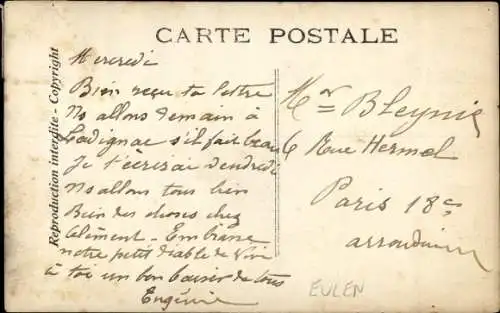 CARTE POSTALE
Reproduction interdite - Copyright
Mercredi
Bien reçu ta lettre
Ns allons demain à
Ladignac s'il fait beau
Je t'écrirai vendredi
Ns allons tous bien
Bien des choses chez
Clément - Embrasse
notre petit diable de
à toi un bon baiser de tous
Eugénie
Mr Bleynie
6 Rue Hermel
Paris 18e
EULEN